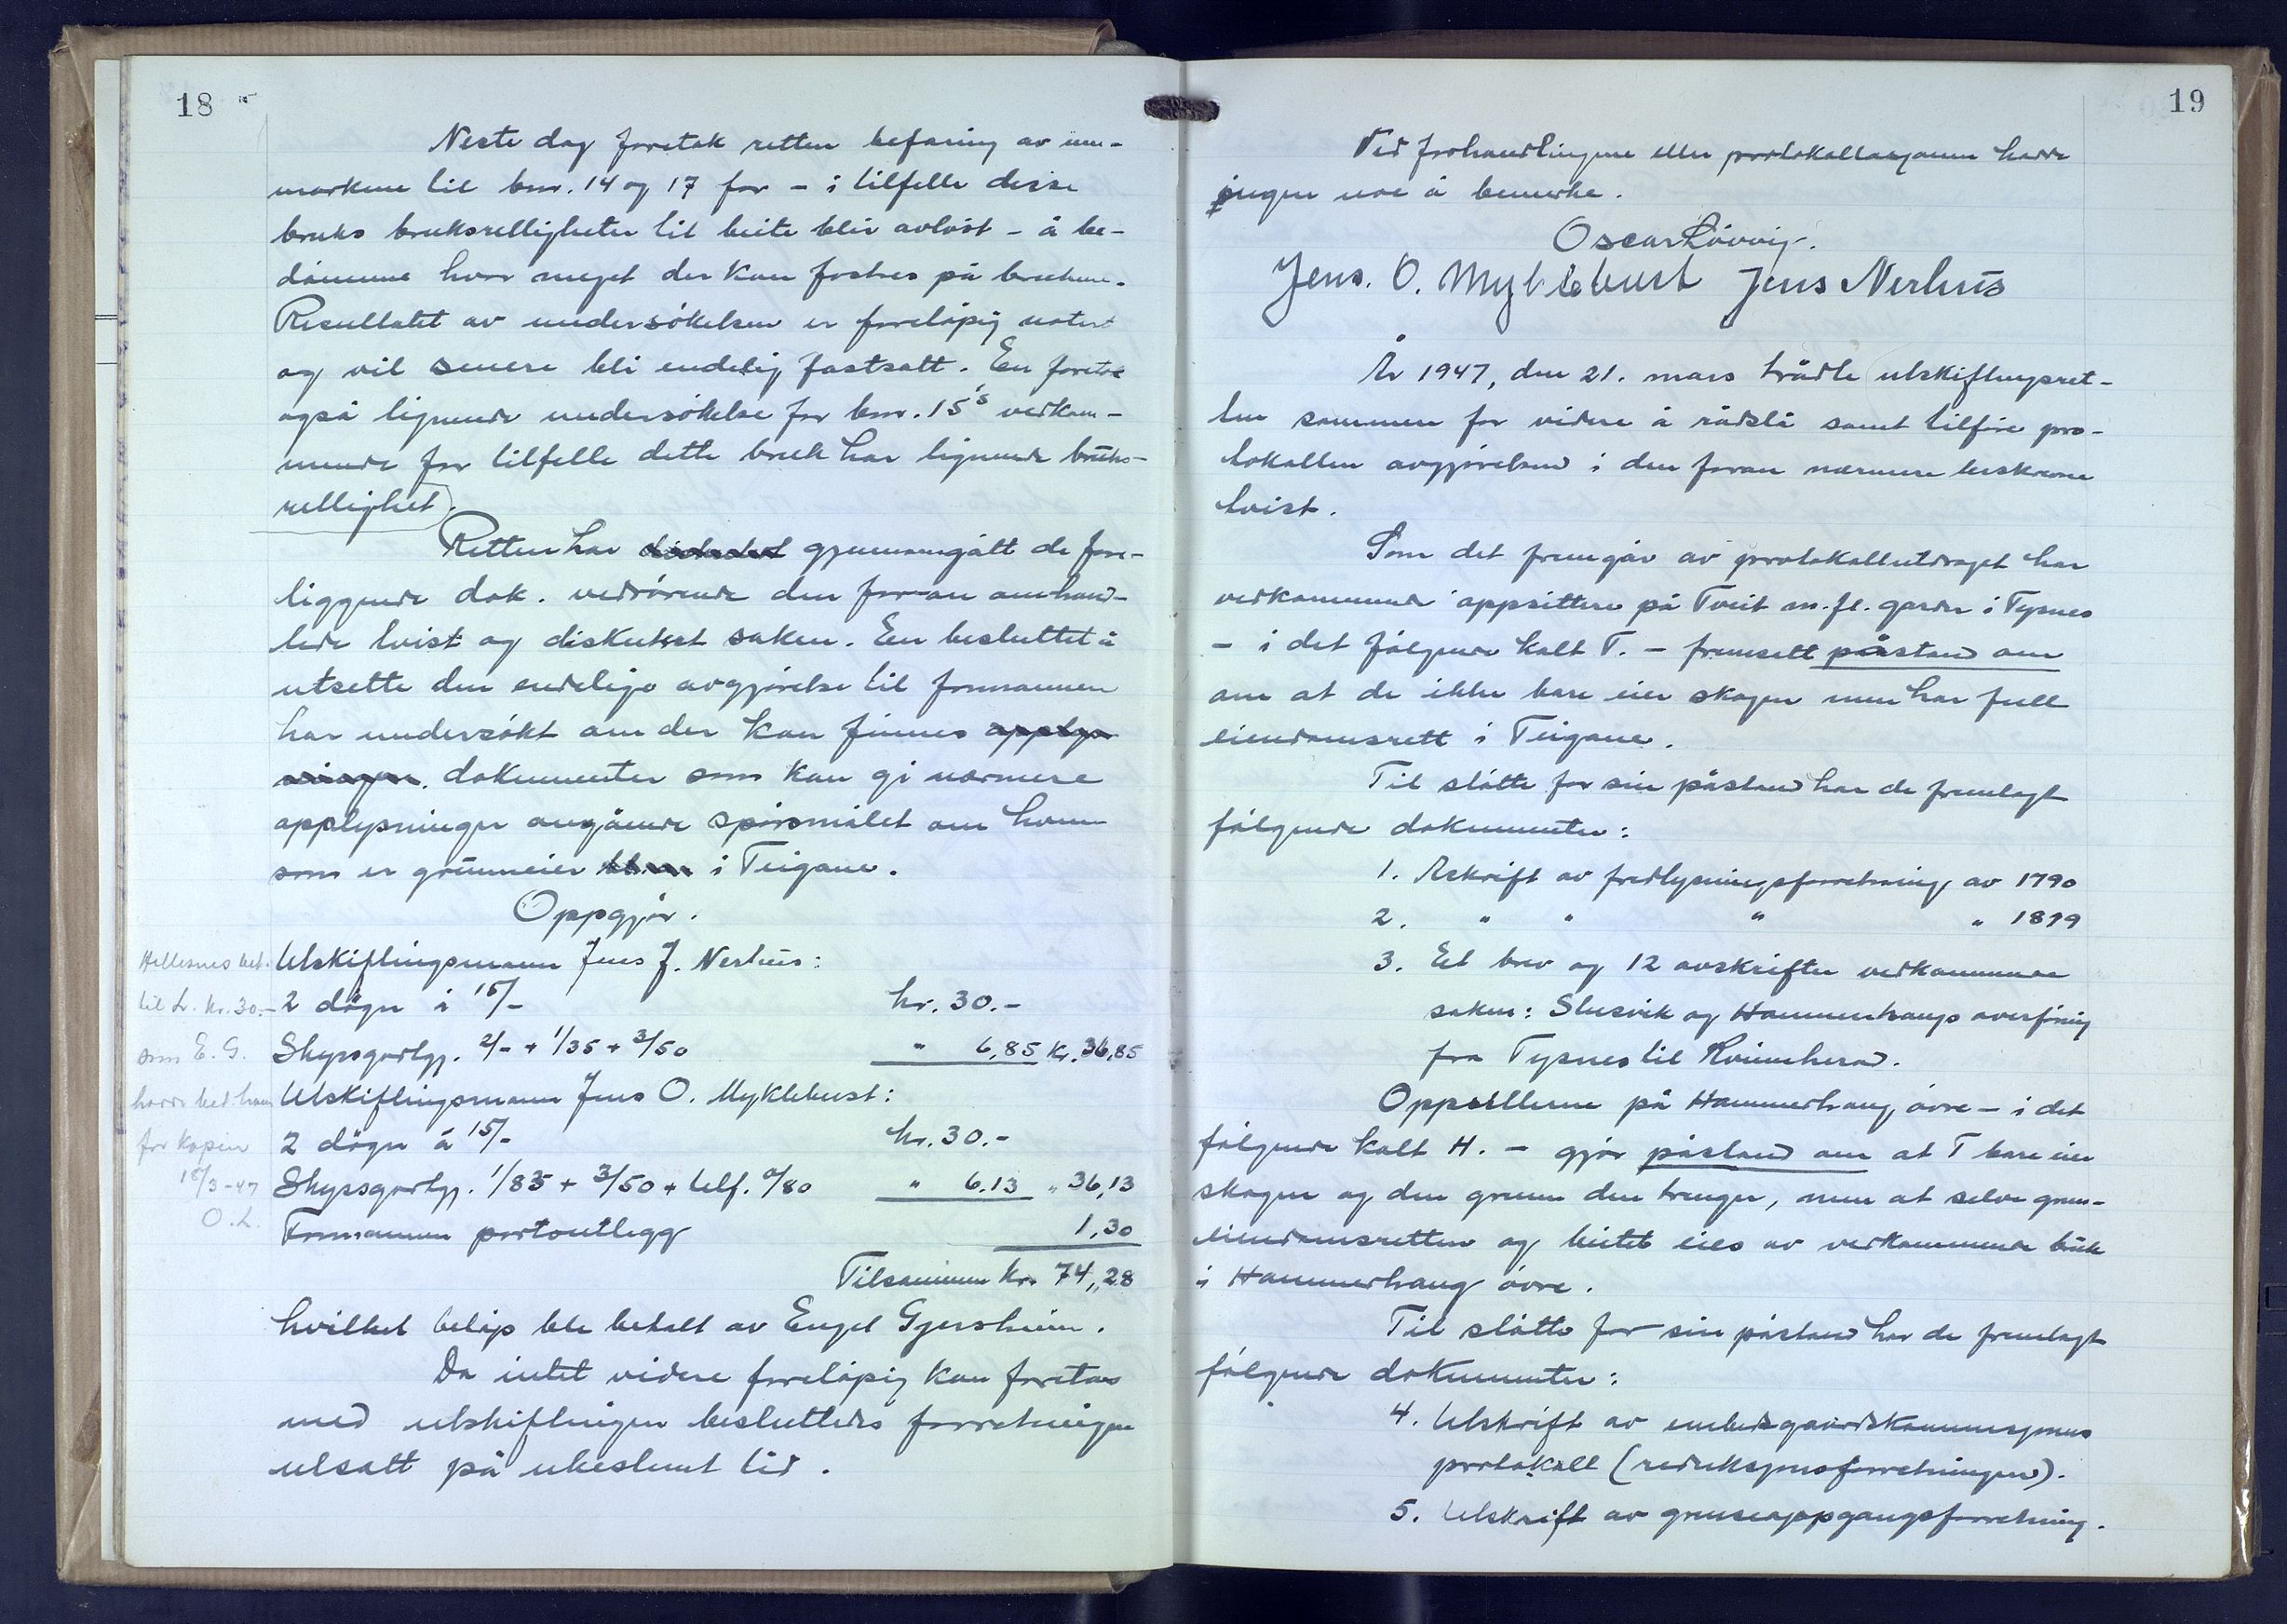 18
Neste dag foretok retten befaring av inn-
markene til bnr. 14 og 17 for - i tilfelle disse
bruks bruksrettigheter til beite blir avløst - å be-
dømme hvor meget der kan fostres på brukene.
Resultatet av undersøkelsen er foreløpig notert
og vil senere bli endelig fastsatt. En foretok
også lignende undersøkelse for bnr. 15's vedkom-
mende for tilfelle dette bruk har lignende bruks-
rettighet.
Retten har gjennomgått de fore-
liggende dok. vedrørende den foran omhand-
lede tvist og diskutert saken. En besluttet å
utsette den endelige avgjørelse til formannen
har undersøkt om der kan finnes opplys-
ninger. dokumenter som kan gi nærmere
opplysninger angående spørsmålet om hvem
som er grunneier i Teigane.
Oppgjør.
Utskiftingsmann Jens J. Nerhus:
2 døgn à 15/- kr. 30.-
Skyssgodtgj. 2/- + 1/35 + 3/50 " 6,85 Kr. 36,85
Utskiftingsmann Jens O. Myklebust:
2 døgn à 15/- kr. 30.-
Skyssgodtgj. 1/83 + 3/50 + telf. 0/80 " 6.13 " 36,13
Formannen portoutlegg 1,30
Tilsammen kr. 74,28
hvilket beløp ble betalt av Engel Gjersheim.
Da intet videre foreløpig kan foretas
med utskiftingen besluttedes forretningen
utsatt på ubestemt tid.
Hellesnes bet.
til L. kr. 30.-
som E. G.
hadde bet. ham
for kopier
18/3-47
O.L.
19
Ved forhandlingene eller protokollasjonen hadde
ingen noe å bemerke.
Oscar Løvvig.
Jens. O. Myklebust Jens Nerhus
År 1947, den 21. mars trådte utskiftingsret-
ten sammen for videre å rådslå samt tilføre pro-
tokollen avgjørelsen i den foran nærmere beskrevne
tvist.
Som det fremgår av protokollutdraget har
vedkommende oppsittere på Tveit m. fl. garder i Tysnes
- i det følgende kalt T. - fremsett påstand om
om at de ikke bare eier skogen men har full
eiendomsrett i Teigane.
Til støtte for sin påstand har de fremlagt
følgende dokumenter:
1. Avskrift av fredlysningsforretning av 1790
2. " " " " 1879
3. Et brev og 12 avskrifter vedkommende
saken: Slusvik og Hammerhaugs overføring
fra Tysnes til Kvinnherad.
Oppsitterne på Hammerhaug øvre - i det
følgende kalt H. - gjør påstand om at T bare eier
skogen og den grunn den trenger, men at selve grunn-
eiendomsretten og beitet eies av vedkommende bruk
i Hammerhaug øvre.
Til støtte for sin påstand har de fremlagt
følgende dokumenter:
4. Utskrift av embedsgaardskommisjonens
protokoll (reduksjonsforretningen).
5. Utskrift av grenseoppgangsforretning.